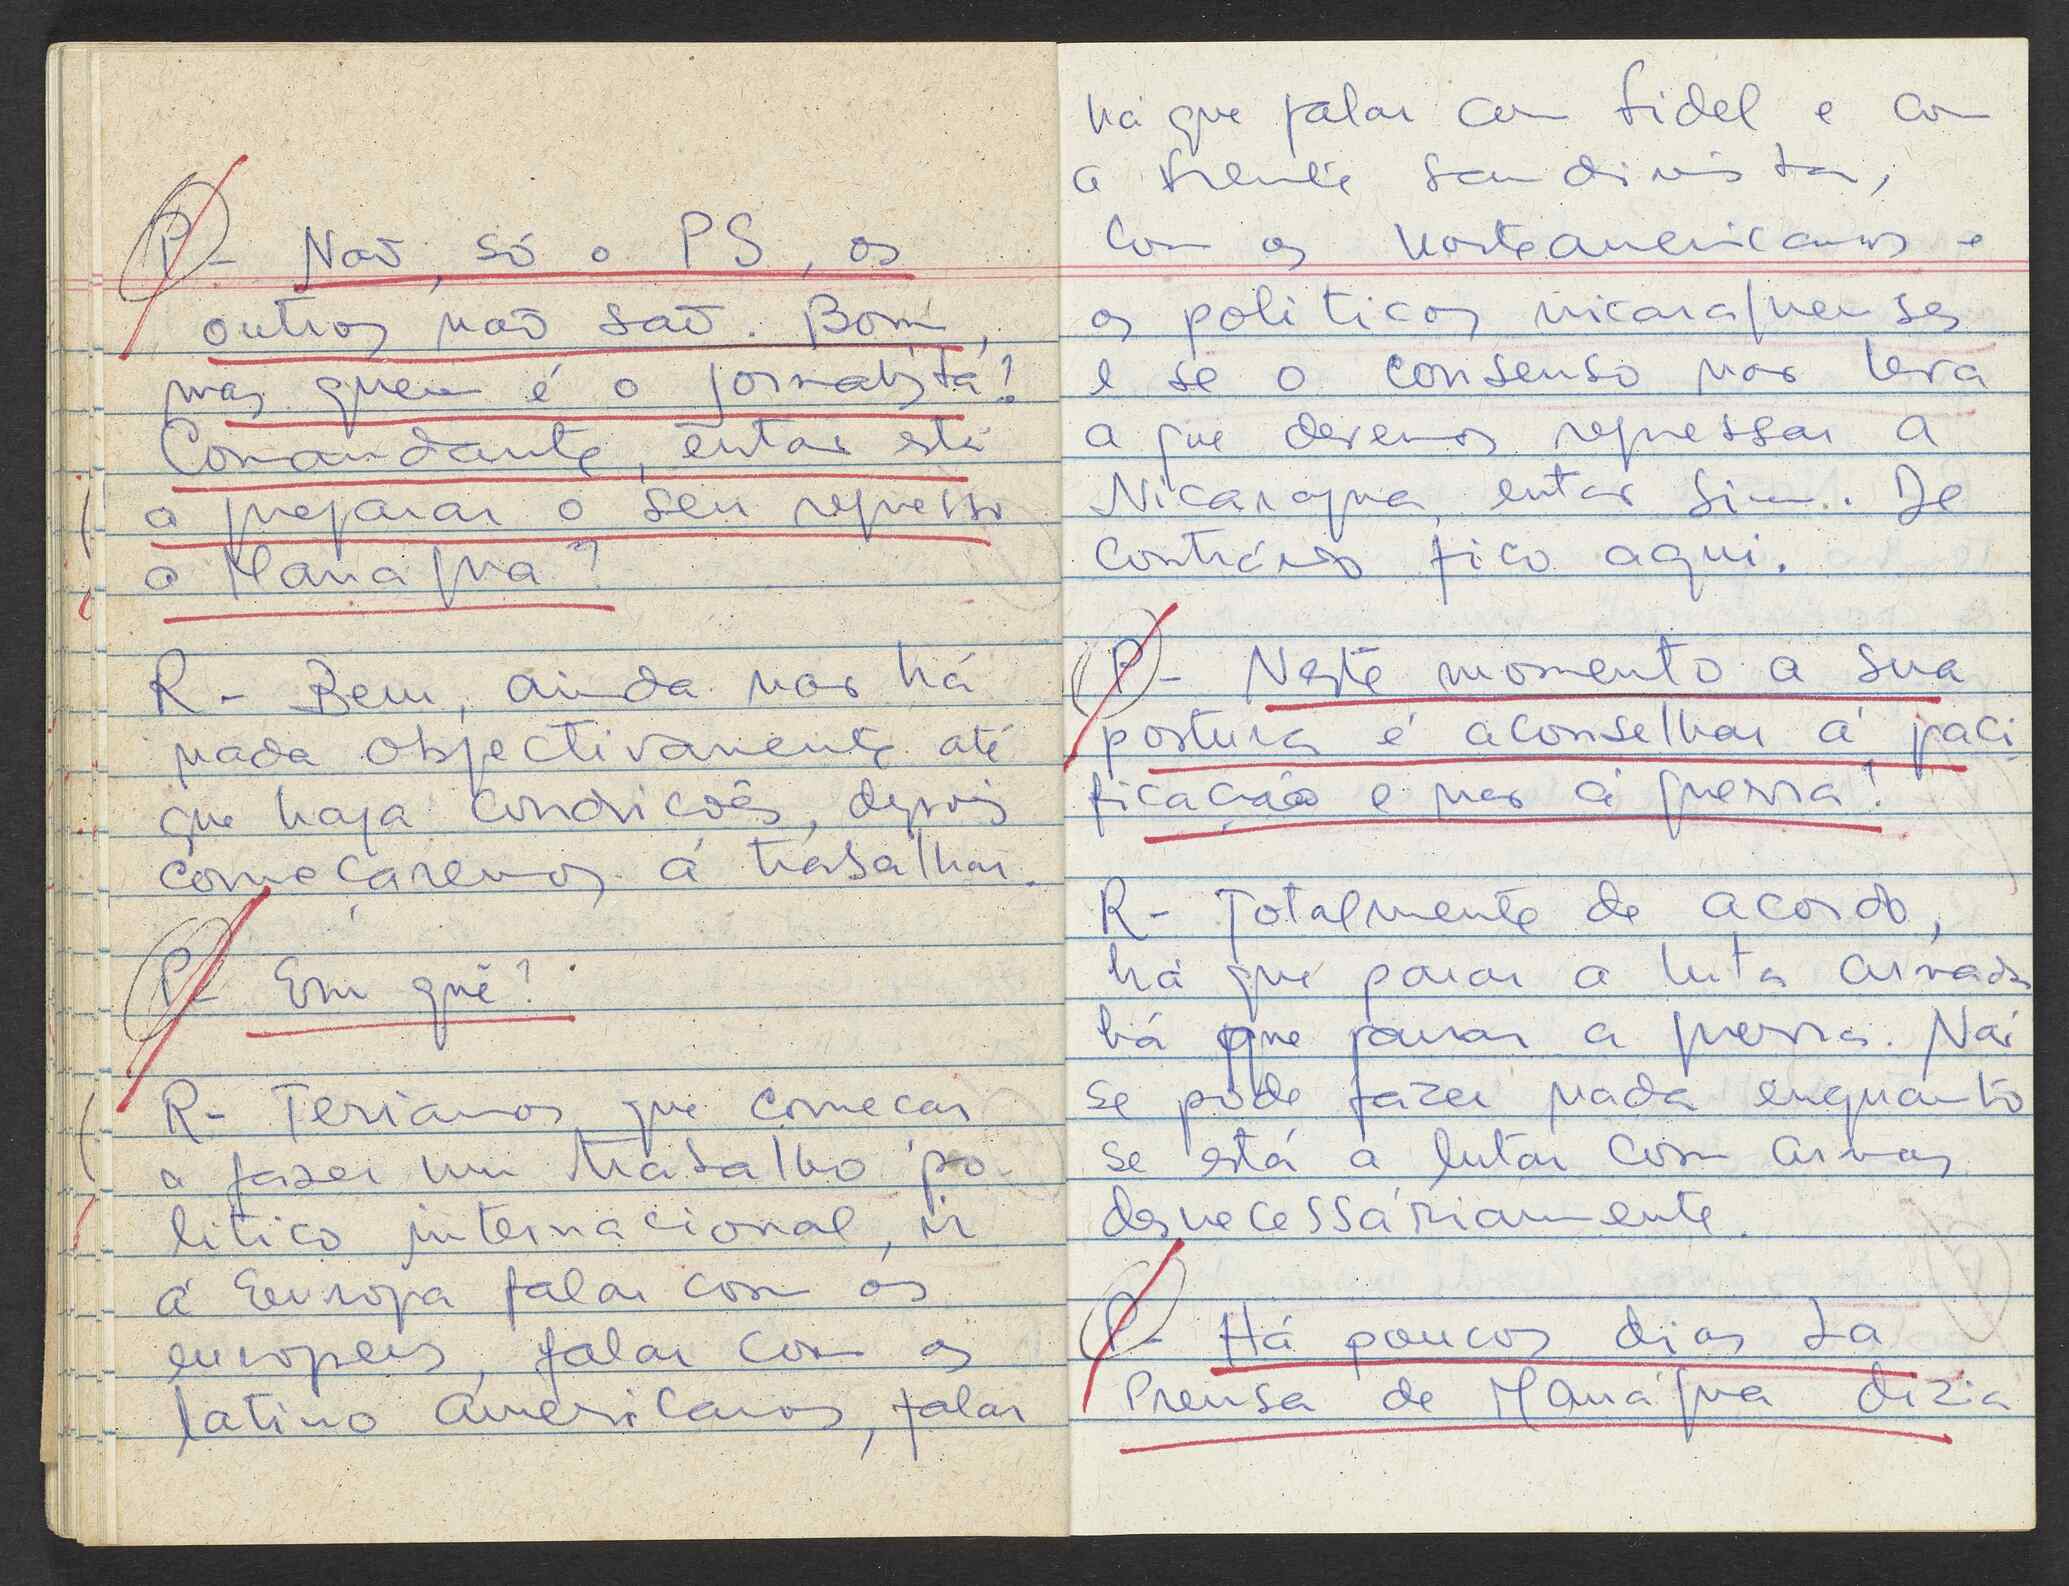 P - Naõ, só o PS, os
outros naõ saõ. Bom,
mas quem é o jornalista?
Comandante, entao está
a preparar o seu regresso
a Manágua?
R - Bem, ainda nao há
nada objectivamente até
que haja condricoês, depois
começaremos á trabalhar.
P - Em quê?
R - Teriamos que comecar
a fazer um trabalho po-
litico internacional, ir
á Europa falar com os
europeus, falar com os
latino americanos, falar
há que falar com Fidel e com
a Frente Sandinista,
Com os norteamericanos e
os politicos nicaraguenses
e se o consenso nos leva
a que devemos regressar a
Nicaragua, entao sim.. De
contrário fico aqui.
P - Neste momento a sua
postura é aconselhar á paci
ficação e nao á guerra?
R - Totalmente de acordo,
há que parar a luta armada
há que parar a guerra. Naõ
se pode fazer nada enquanto
se está a lutar com armas
desnecessáriamente.
P - Há poucos dias La
Prensa de Manágua dizia